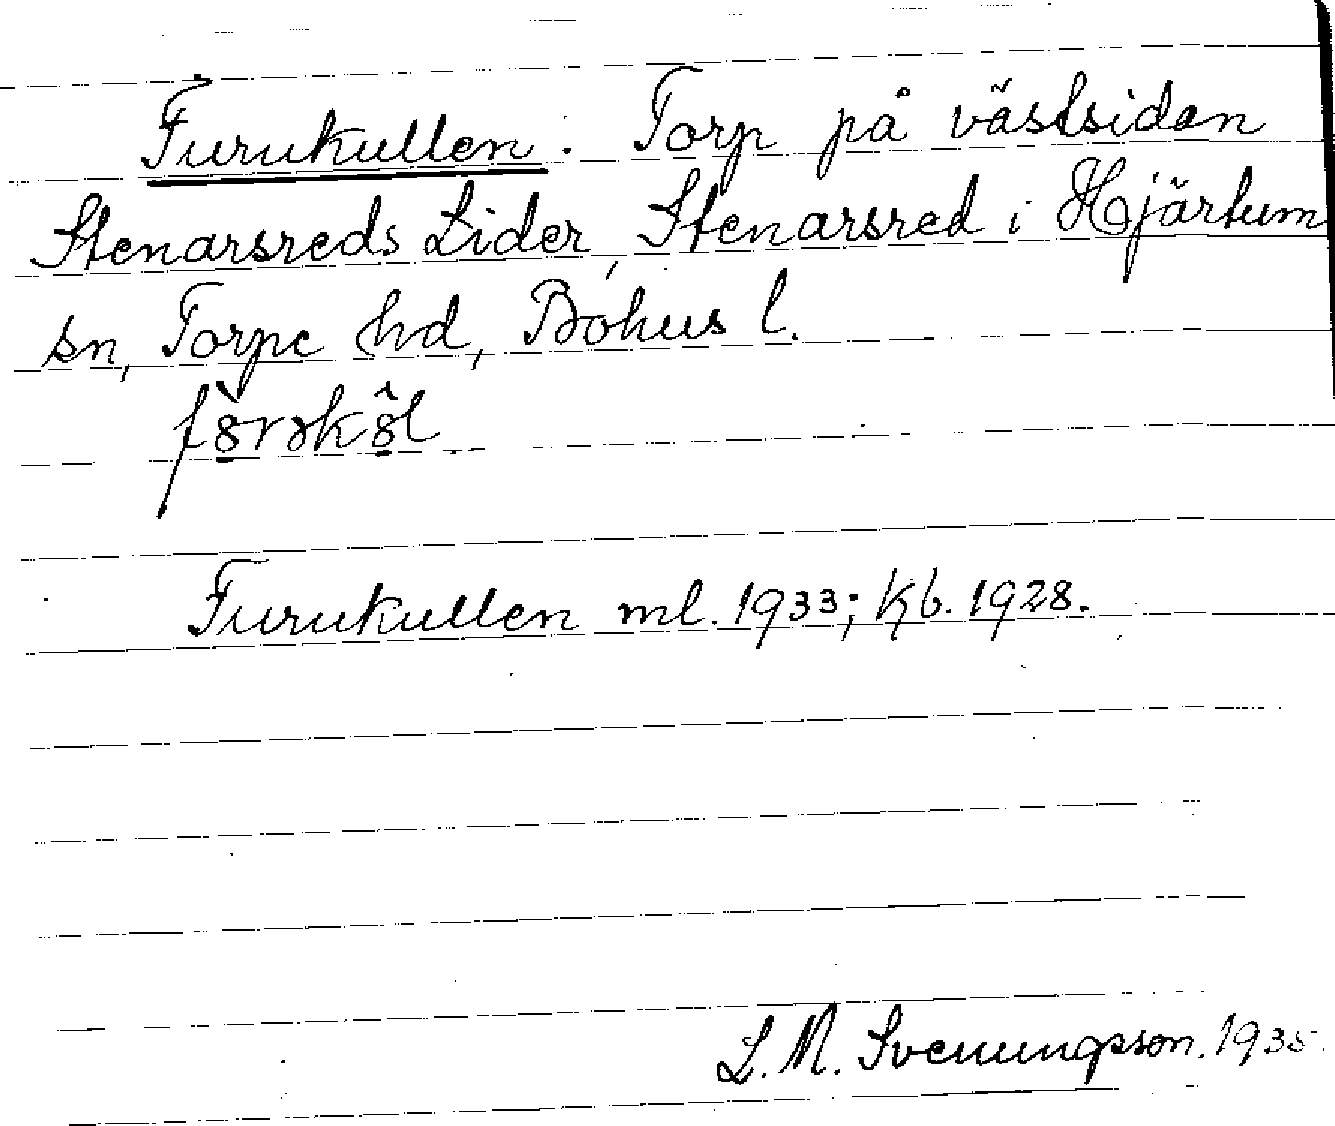 Furukullen. Torp på västsidan
Stenarsreds Lider, Stenarsred i Hjärtum
sn, Torpe hd, Bohus l.
Furukullen ml. 1933; Kb. 1928.
L. M. Svenungsson. 1935.